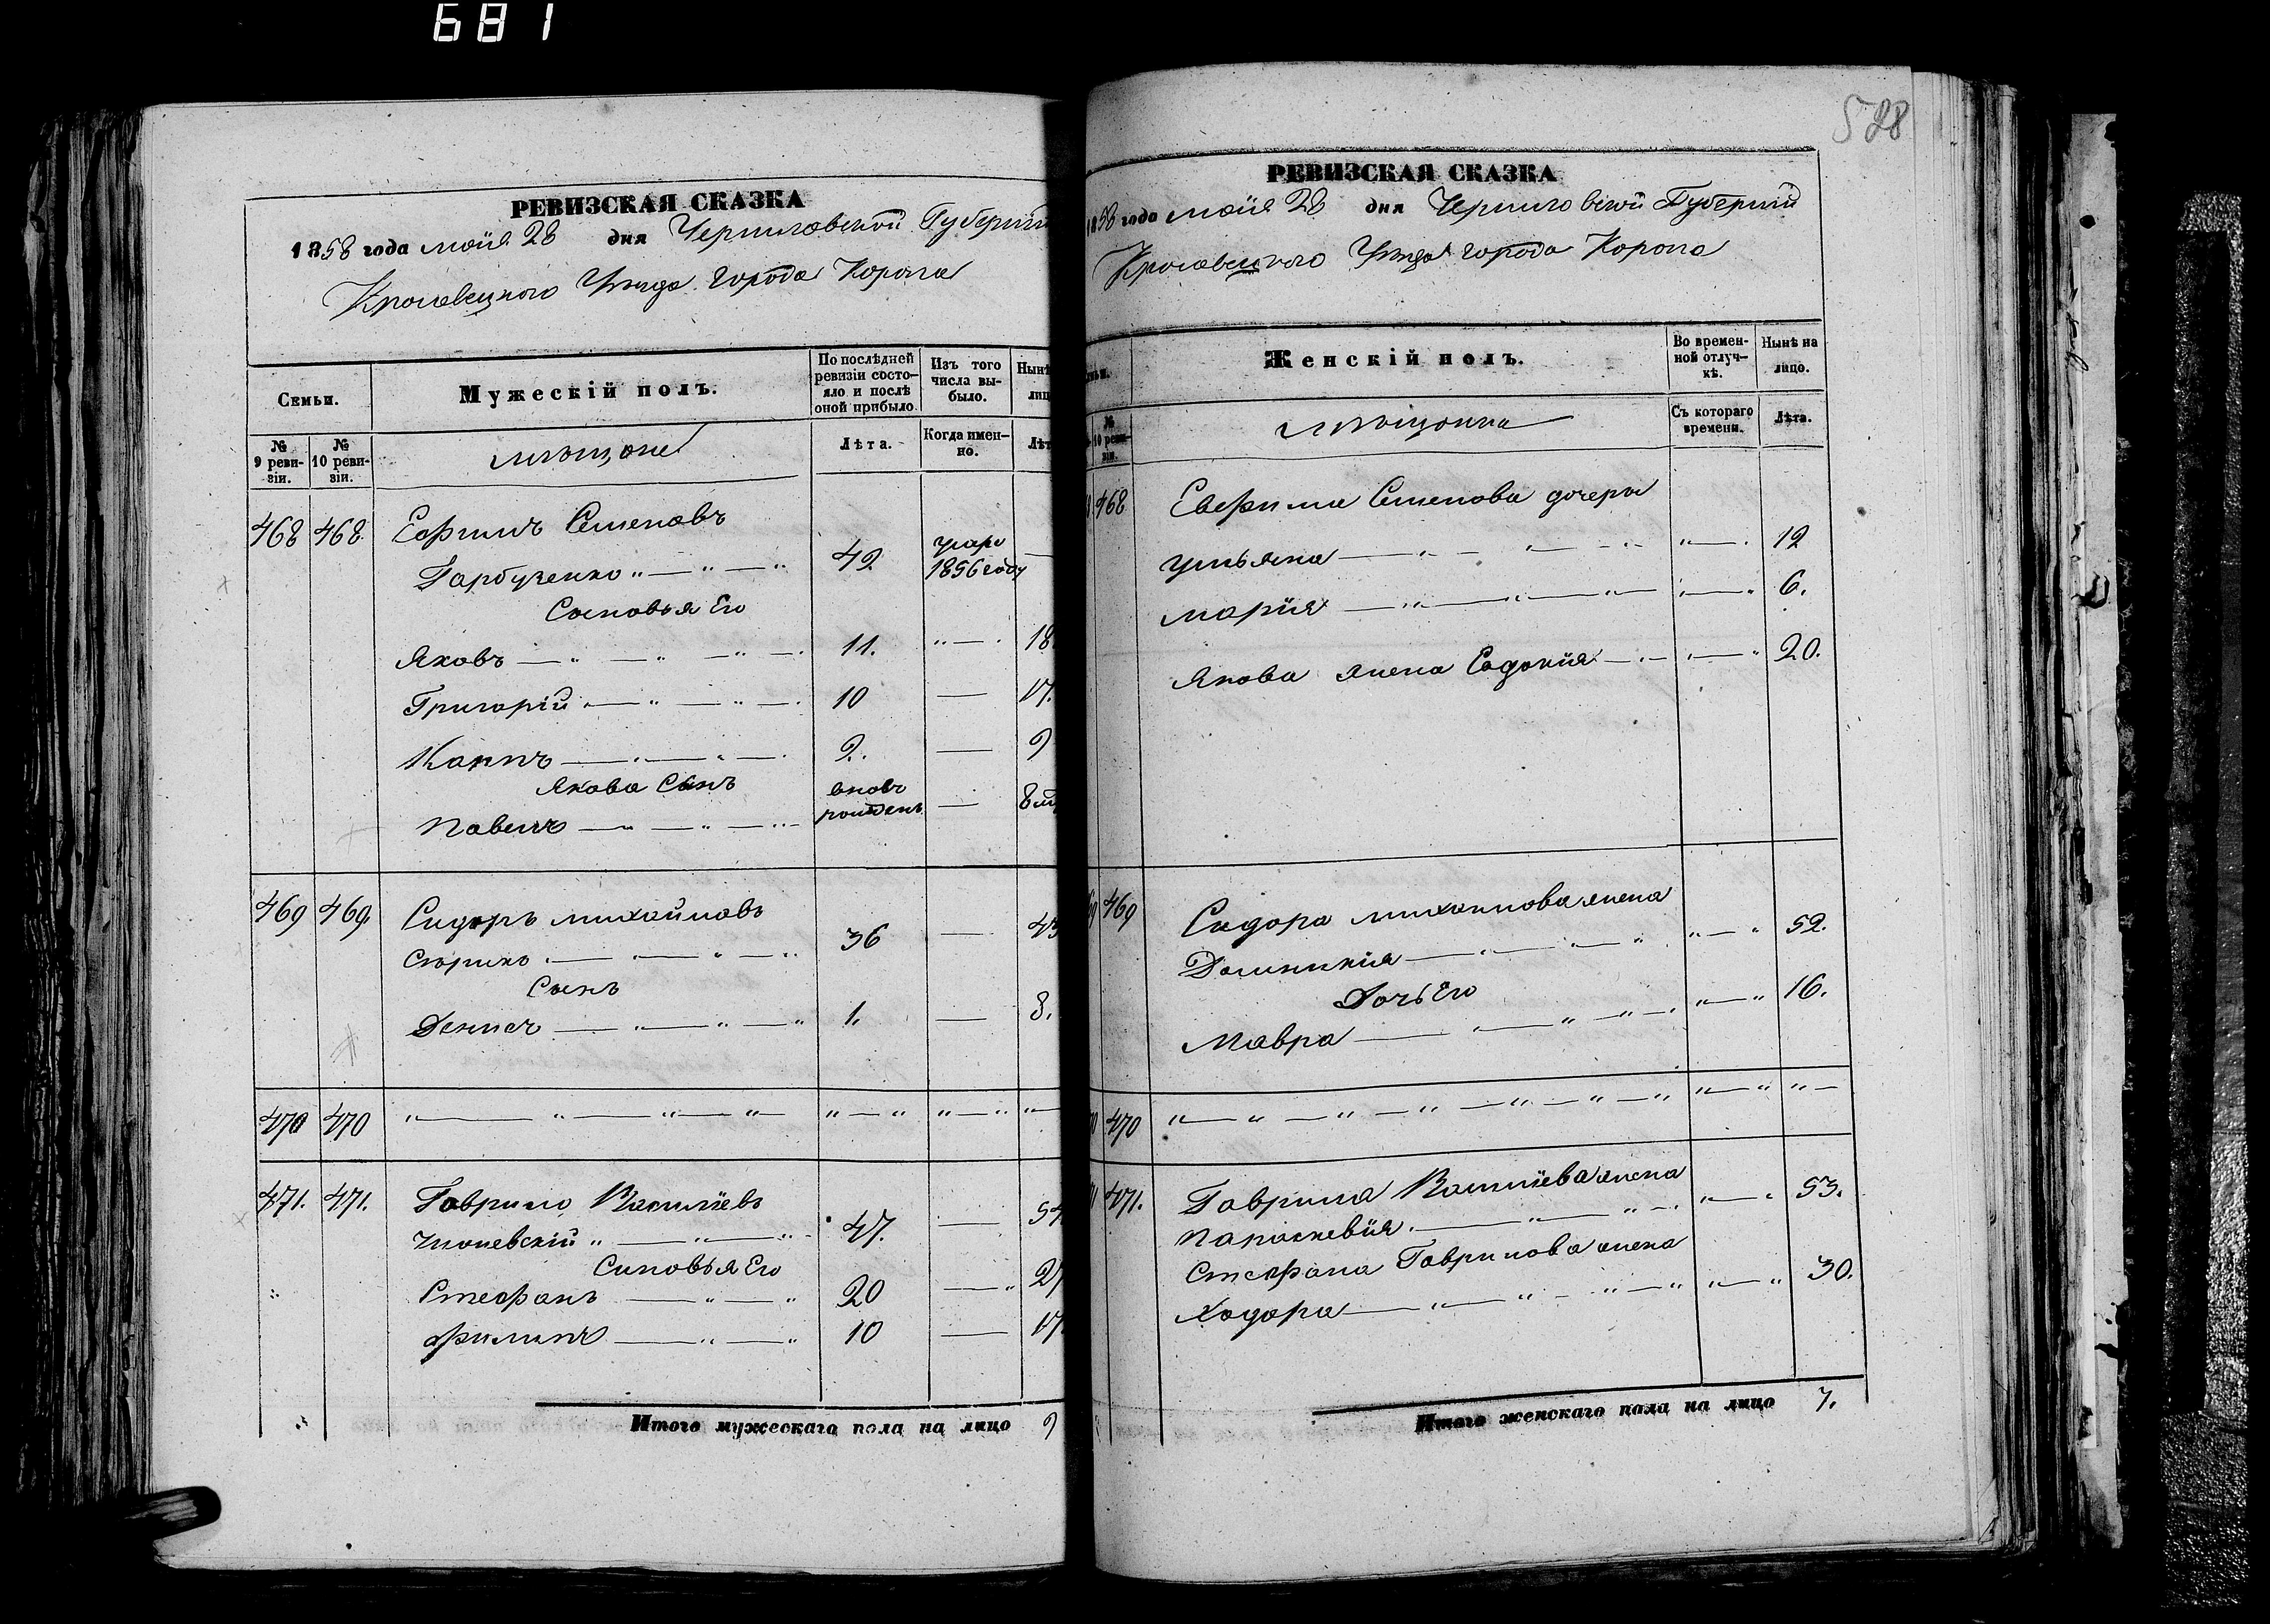 681
РЕВИЗСКАЯ СКАЗКА
1858 года мая 28 дня Черниговской Губерніи
Кролевецкого Уѣзда города Коропа
Семьи.
Мужескій полъ.
По послѣдней ревизіи состояло и послѣ оной прибыло
Изъ того числа выбыло.
Нынѣ
лиц
№ 9 ревизіи.
№ 10 ревизіи.
мѣщане
Лѣта.
Когда именно.
Лѣт
468 468. Ефимъ Семеновъ
Гарбузенко " — " — " 42 умре 1856 году —
Сыновья Его
Яковъ — " — " — " — 11. " — 18
Григорій — " — " — 10 — 17.
Карпъ — " — " — 2. — 9
Якова Сынъ
Павелъ — " — " — вновь рожденъ — 8 м
469 469. Сидоръ Михайловъ
36 — 43
Сынъ
Денисъ — " — " — " 1. — 8.
470 470 " — " — " — " " — " " — " "
471. 471. Гаврило Василіевъ
47. — 54
Сыновья Его
Стефанъ — " — " 20 — " 27
Филипъ — " — " 10 — 17
Итого мужескаго пола на лицо 9
528
РЕВИЗСКАЯ СКАЗКА
1858 года мая 28 дня Черниговской Губерніи
Кролевецкого Уѣзда города Коропа
Женскій полъ.
Во временной отлучкѣ.
Нынѣ на лицо.
№ 10 ревизіи.
мѣщанки
Съ котораго времени.
Лѣта.
468 Ефима Семенова дочери
Ульяна — " — " — " " — 12
Марія — " — " — " — " — " 6.
Якова жена Евдокія — " — " — " 20.
469 Сидора Михайлова жена
Домникія — " — " — " " — " 52.
Дочь Его
Мавра — " — " — " — " — " 16.
470 " — " — " — " — " — " — " " — " " —
471. Гаврила Василіева жена
Параскевія. — " — " — " — " 53.
Стефана Гаврилова жена
Ходора — " — " — " — " " — " 30.
Итого женскаго пола на лицо 7.